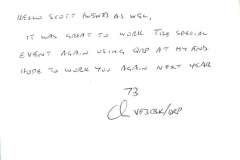 HELLO SCOTT AS WELL,
IT WAS GREAT TO WORK THE SPECIAL
EVENT AGAIN USING QRP AT MY END
HOPE TO WORK YOU AGAIN NEXT YEAR
73
/QRP